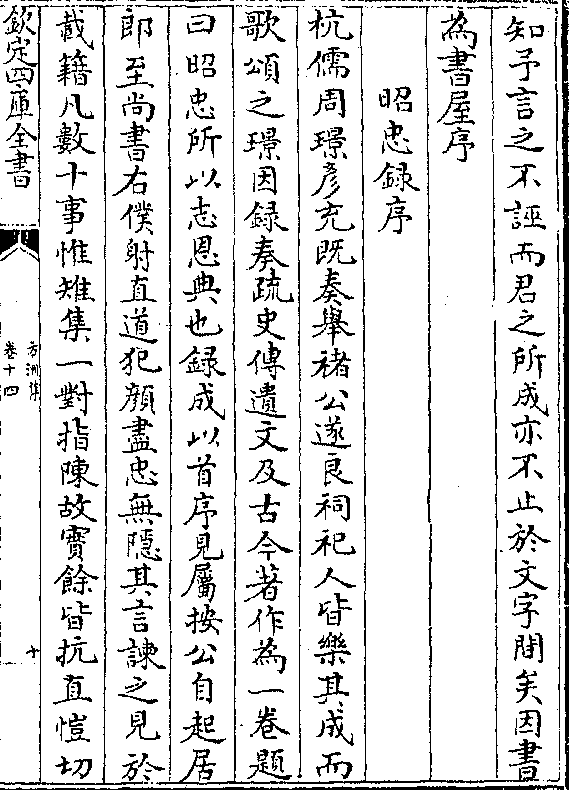 知予言之不誣而君之所成亦不止於文字間矣因書
為書屋序
昭忠録序
杭儒周璟彦充既奏舉褚公遂良祠祀人皆樂其成而
歌頌之璟因録奏疏史傳遺文及古今著作為一卷題
曰昭忠所以志恩典也録成以首序見屬按公自起居
郎至尚書右僕射直道犯顔盡忠無隠其言諫之見於
載籍凡數十事惟雉集一對指陳故實餘皆抗直愷切
欽定四庫全書
方洲集
卷十四
十